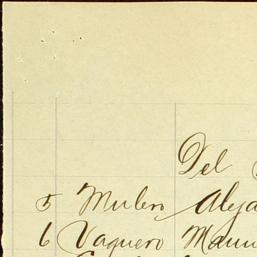 Del
5 Mulen Aleja
6 Vaquero Manu